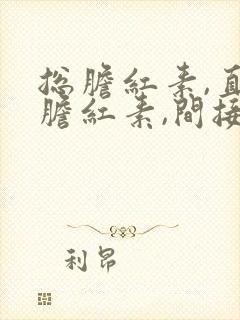 总胆紅素,直
膽紅素,間接
利昂